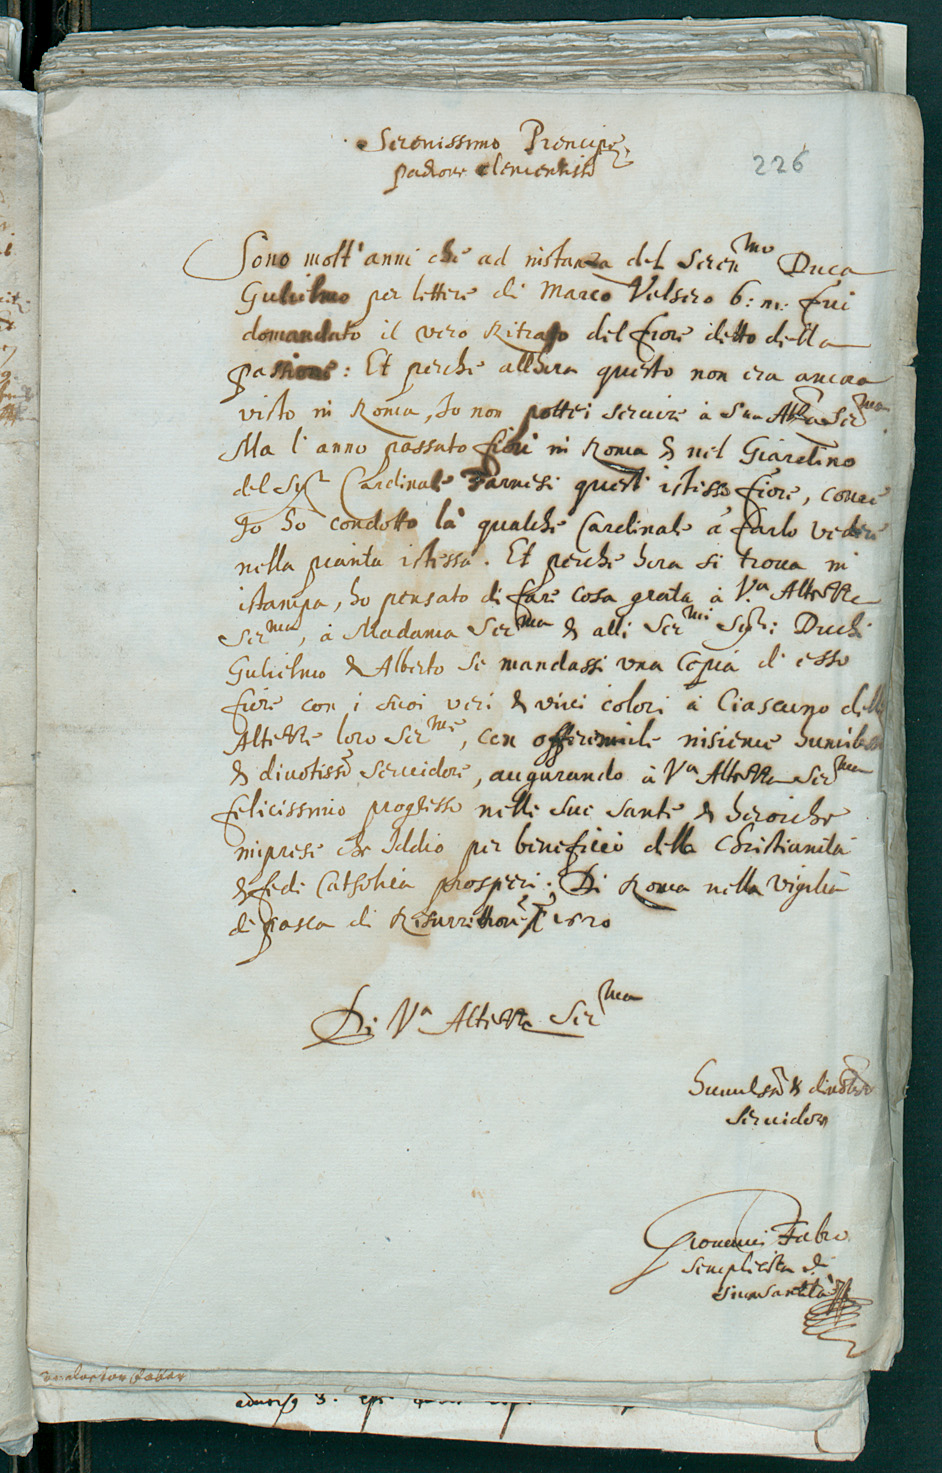 Serenissimo Prencipe
padrone clementissº
226
Sono molt'anni che ad instanza del Seren.mo Duca
Gulielmo per lettere di Marco Velsero b: m: fui
domandato il vero Ritratto del fiore detto della
passione: Et perche allhora questo non era ancora
visto in Roma, Io non pottei servire à Sua Altza Serma
Ma l'anno passato fiori in Roma & nel Giardino
del Sigr Cardinale Farnesi questi istesso fiore, come
Io ho condotto là qualche Cardinale à farlo vedere
nella pianta istessa. Et perche hora si trova in
istampa, ho pensato di fare cosa grata à Va Altezza
Serma, à Madama Serma & alli Sermi Sigri: Duchi
Gulielmo & Alberto se mandassi una copia di esso
fiore con i suoi veri & vivi colori à ciascuno delle
Altezze loro Serme, con offerirmile insieme humilissº
& divotissº servidore, augurando à Va Altezza Serma
felicissimo progresso nelle sue sante & heroiche
imprese che Iddio per beneficio della Christianità
& fede Catholica prosperi. Di Roma nella vigilia
di pasca di Resurrettione 1620
Di Va Altezza Serma
Humilissº & divotissº
servidore
Giovanni Fabro
semplicista di
sua santità
doctor Faber